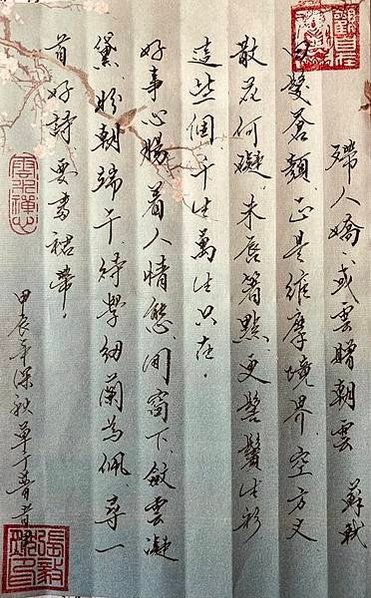 殢人嬌·或雲贈朝雲 蘇軾
白髮蒼顏,正是維摩境界,空方丈
散花何礙,朱唇箸點,更髻鬟生彩
這些個千生萬生只在。
好事心腸,着人情態,閒窗下,斂雲凝
黛,明朝端午,待學紉蘭為佩,尋一
首好詩,要書裙帶。
甲辰年深秋草于普者
雲水禪心